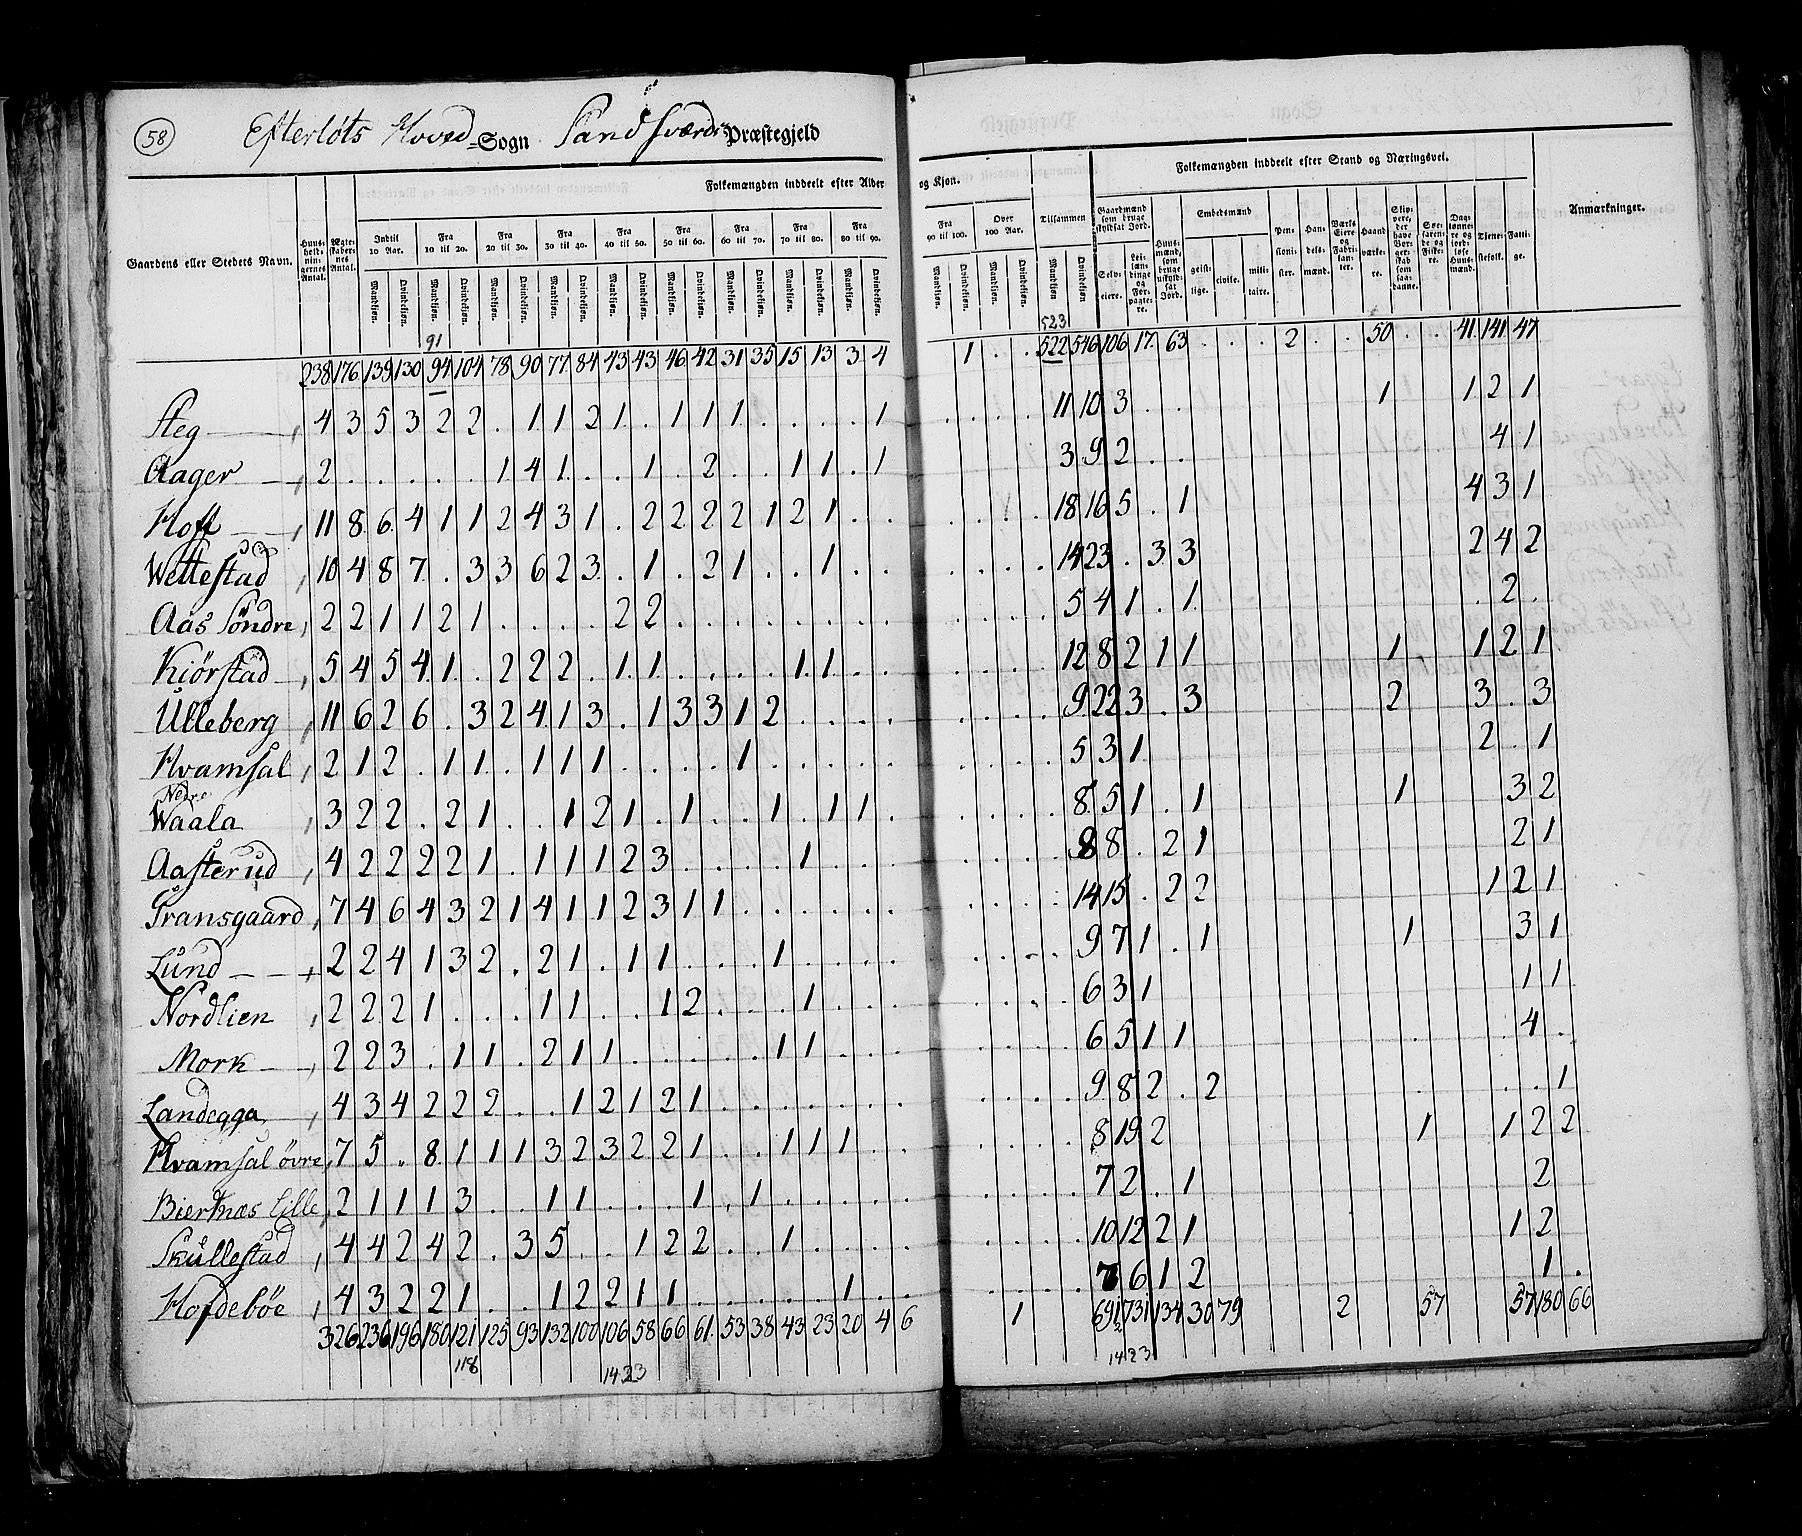 58 Efterløts Hoved-Sogn Sandsværds Præstegjeld
Folkemængden inddeelt efter Alder og Kjøn. Tilsammen Folkemængden inddeelt efter Stand og Næringsvei. Anmærkninger.
Gaardens eller Stedets Navn. Huusholdningernes Antal. Ægtefolkenes Antal. Indtil 10 Aar. Fra 10 til 20. Fra 20 til 30. Fra 30 til 40. Fra 40 til 50. Fra 50 til 60. Fra 60 til 70. Fra 70 til 80. Fra 80 til 90. Fra 90 til 100. Over 100 Aar. Gaardmænd som bruge skyldsat Jord. Embedsmænd
Mandkjøn. Qvindekjøn. Mandkjøn. Qvindekjøn. Mandkjøn. Qvindekjøn. Mandkjøn. Qvindekjøn. Mandkjøn. Qvindekjøn. Mandkjøn. Qvindekjøn. Mandkjøn. Qvindekjøn. Mandkjøn. Qvindekjøn. Mandkjøn. Qvindekjøn. Mandkjøn. Qvindekjøn. Mandkjøn. Qvindekjøn. Mandkjøn Qvindekjøn Selveiere. Leilændinge og Forpagtere. Huusmænd, som bruge uskyldsat Jord. geistlige. civile. militaire. Pensionister. Handelsmænd. Værks Eiere og Fabrikanter. Haandværkere. Skippere, der have Borgerskab som saadanne. Søefarende og Fiskere. Daglønnere og jordløse Huusmænd. Tjenestefolk. Fattige.
91 523
238 176 139 130 94 104 78 90 77 84 43 43 46 42 31 35 15 13 3 4 . 1 . . 522 546 106 17 63 . . . 2 . . 50 . . 41 141 47
Steg 4 3 5 3 2 2 . 1 1 2 1 . 1 1 1 . . . . 1 . . . . 11 10 3 . . 1 1 2 1
Aager 2 . . . . . 1 4 1 . . 1 . 2 . . 1 1 . 1 . . . . 3 9 2 . . 4 1
Hoft 11 8 6 4 1 1 2 4 3 1 . 2 2 2 2 1 2 1 . . . . . . 18 16 5 . 1 4 3 1
Wettestad 10 4 8 7 . 3 3 6 2 3 . 1 . 2 1 . . 1 . . . . . . 14 23 . 3 3 2 4 2
Aas Söndre 2 2 1 1 2 1 . . . . 2 2 . . . . . . . . . . . . 5 4 1 . 1 . 2 .
Kiörstad 5 4 5 4 1 . 2 2 2 . 1 1 . . . . 1 1 . . . . . . 12 8 2 1 1 1 1 2 1
Ulleberg 11 6 2 6 . 3 2 4 1 3 . 1 3 3 1 2 . . . . . . . . 9 22 3 . 3 2 3 . 3
Hvamsal 2 1 2 . 1 1 . 1 1 1 . . . . 1 . . . . . . . . . 5 3 1 2 . 1
Nedre
Waala 3 2 2 . 2 1 . . 1 2 1 . 1 . . 1 . 1 1 . . . . . 8 5 1 . 1 1 3 2
Aasterud 4 2 2 2 2 1 . 1 1 1 2 3 . . . . 1 . . . . . . . 8 8 . 2 1 2 1
Gransgaard 7 4 6 4 3 2 1 4 1 1 2 3 1 1 . . . . . . . . . . 14 15 . 2 2 1 2 1
Lund 2 2 4 1 3 2 . 2 1 . 1 1 . . . 1 . . . . . . . . 9 7 1 . 1 1 3 1
Nordlien 2 2 2 1 . . . 1 1 . . 1 2 . . . 1 . . . . . . . 6 3 1 1 1
Mork 2 2 3 . 1 1 . 2 1 1 . . . . . 1 1 . . . . . . . 6 5 1 1 4 .
Landegga 4 3 4 2 2 2 . . 1 2 1 2 1 . . . . . . . . . . . 9 8 2 . 2 . . . 1
Hvamsal övre 7 5 . 8 1 1 1 3 2 3 2 2 1 . . 1 1 1 . . . . . . 8 19 2 1 1 2 2
Biertnæs lille 2 1 1 1 3 . . 1 1 . . . 1 . 1 . . . . . . . . . 7 2 . 1 2
Skullestad 4 4 2 4 2 . 3 5 . . 1 2 2 . . 1 . . . . . . . . 10 12 2 1 1 2
Hofdebøe 4 3 2 2 1 . . 1 2 2 1 1 . . . . . 1 . . . . . . 7 6 1 2 1 .
326 236 196 180 121 125 93 132 100 106 58 66 61 53 38 43 23 20 4 6 1 691 731 134 30 79 2 57 57 180 66
118 1423 1423